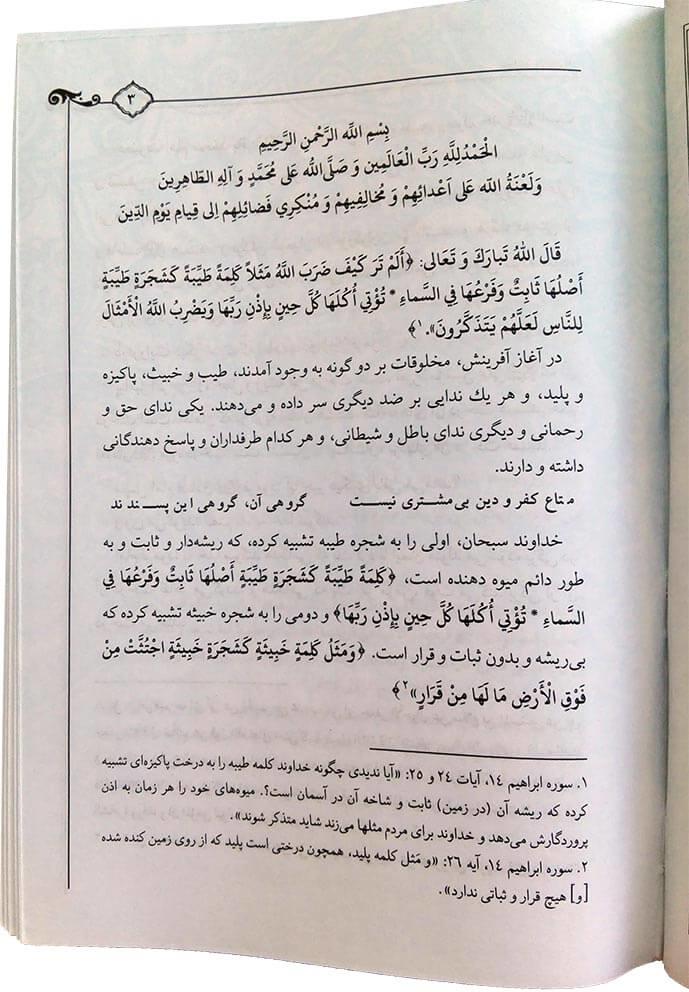 ٣
بِسْمِ اللَّهِ الرَّحْمنِ الرَّحِيمِ
الْحَمْدُلِلَّهِ رَبِّ الْعَالَمِين وَ صَلَّى اللَّه عَلى مُحَمَّدٍ وَ آلِهِ الطّاهِرِينَ
وَ لَعْنَةُ اللَّه عَلى اَعْدائِهِمْ وَ مُخالِفِيهِمْ وَ مُنْكِرِي فَضائِلِهِمْ اِلى قِيامِ يَوْمِ الدِّينَ
قَالَ اللَّهُ تَبارَكَ وَ تَعَالى: ﴿أَلَمْ تَرَ كَيْفَ ضَرَبَ اللَّهُ مَثَلاً كَلِمَةً طَيِّبَةً كَشَجَرَةٍ طَيِّبَةٍ
أَصْلُهَا ثَابِتٌ وَفَرْعُهَا فِي السَّماءِ * تُؤْتِي أُكُلَهَا كُلَّ حِينٍ بِإِذْنِ رَبِّهَا وَيَضْرِبُ اللَّهُ الْأَمْثَالَ
لِلنَّاسِ لَعَلَّهُمْ يَتَذَكَّرُونَ».١﴾
در آغاز آفرینش، مخلوقات بر دو گونه به وجود آمدند، طیب و خبیث، پاکیزه
و پلید، و هر یك ندایی بر ضد دیگری سر داده و می‌دهند. یکی ندای حق و
رحمانی و دیگری ندای باطل و شیطانی، و هر کدام طرفداران و پاسخ دهندگانی
داشته و دارند.
متاع کفر و دین بی‌مشتری نیست گروهی آن، گروهی این پسندند
خداوند سبحان، اولی را به شجره طیبه تشبیه کرده، که ریشه‌دار و ثابت و به
طور دائم میوه دهنده است، ﴿كَلِمَةً طَيِّبَةً كَشَجَرَةٍ طَيِّبَةٍ أَصْلُهَا ثَابِتٌ وَفَرْعُهَا فِي
السَّماءِ * تُؤْتِي أُكُلَهَا كُلَّ حِينٍ بِإِذْنِ رَبِّهَا﴾ و دومی را به شجره خبیثه تشبیه کرده که
بی‌ریشه و بدون ثبات و قرار است. ﴿وَمَثَلُ كَلِمَةٍ خَبِيثَةٍ كَشَجَرَةٍ خَبِيثَةٍ اجْتُثَّتْ مِنْ
فَوْقِ الْأَرْضِ مَا لَهَا مِنْ قَرَارٍ»٢﴾
١. سوره ابراهیم ١٤، آیات ٢٤ و ٢٥: «آیا ندیدی چگونه خداوند کلمه طیبه را به درخت پاکیزه‌ای تشبیه
کرده که ریشه آن (در زمین) ثابت و شاخه آن در آسمان است؟. میوه‌های خود را هر زمان به اذن
پروردگارش می‌دهد و خداوند برای مردم مثلها می‌زند شاید متذکر شوند».
٢. سوره ابراهیم ١٤، آیه ٢٦: «و مَثل کلمه پلید، همچون درختی است پلید که از روی زمین کنده شده
[و] هیچ قرار و ثباتی ندارد».